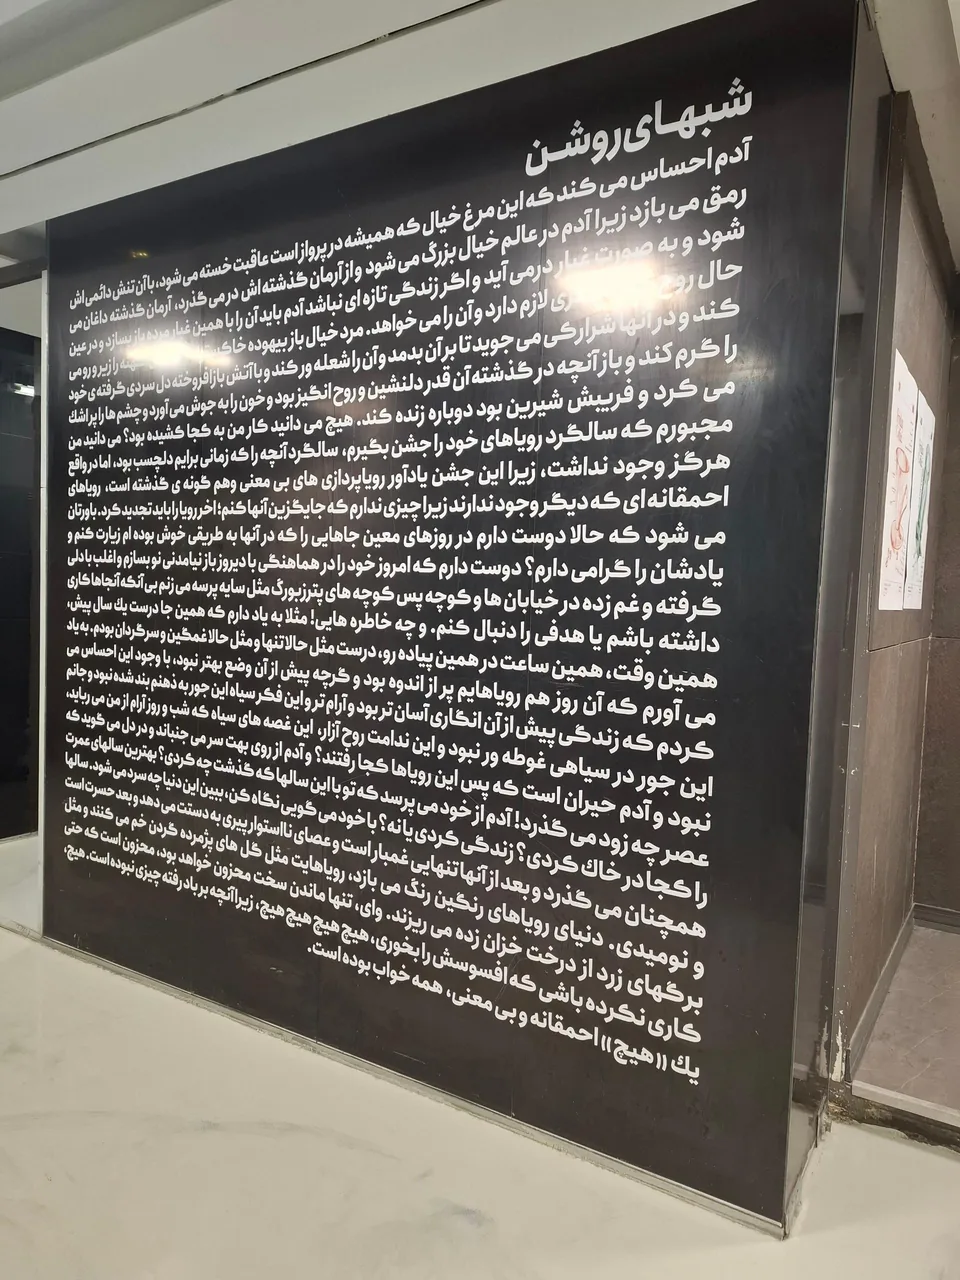 شبهای روشن
آدم احساس می کند که این مرغ خیال که همیشه در پرواز است عاقبت خسته می شود، با آن تنش دائمی اش
رمق می بازد زیرا آدم در عالم خیال بزرگ می شود و از آرمان گذشته اش در می گذرد، آرمان گذشته داغان می
شود و به صورت غبار درمی آید و اگر زندگی تازه ای نباشد آدم باید آن را با همین غبار مرده باز بسازد و در عین
حال روح لازم دارد و آن را می خواهد. مرد خیال باز بیهوده را زیر و رو می
کند و در آنها شرارکی می جوید تا بر آن بدمد وآن را شعله ور کند و با آتش بازافروخته دل سردی گرفته ی خود
را گرم کند و باز آنچه در گذشته آن قدر دلنشین و روح انگیز بود و خون را به جوش می آورد و چشم ها را پر اشك
می کرد و فریبش شیرین بود دوباره زنده کند. هیچ می دانید کار من به کجا کشیده بود؟ می دانید من
مجبورم که سالگرد رویاهای خود را جشن بگیرم، سالگرد آنچه را که زمانی برایم دلچسب بود، اما در واقع
هرگز وجود نداشت، زیرا این جشن یادآور رویاپردازی های بی معنی وهم گونه ی گذشته است، رویاهای
احمقانه ای که دیگر وجود ندارند زیرا چیزی ندارم که جایگزین آنها کنم؛ اخر رویا را باید تجدید کرد. باورتان
می شود که حالا دوست دارم در روزهای معین جاهایی را که در آنها به طریقی خوش بوده ام زیارت کنم و
یادشان را گرامی دارم؟ دوست دارم که امروز خود را در هماهنگی با دیروز باز نیامدنی نو بسازم و اغلب با دلی
گرفته و غم زده در خیابان ها و کوچه پس کوچه های پترزبورگ مثل سایه پرسه می زنم بی آنکه آنجاها کاری
داشته باشم یا هدفی را دنبال کنم. و چه خاطره هایی! مثلا به یاد دارم که همین جا درست یك سال پیش،
همین وقت، همین ساعت در همین پیاده رو، درست مثل حالا تنها و مثل حالا غمگین و سرگردان بودم. به یاد
می آورم که آن روز هم رویاهایم پر از اندوه بود و گرچه پیش از آن وضع بهتر نبود، با وجود این احساس می
کردم که زندگی پیش از آن انگاری آسان تر بود و آرام تر و این فکر سیاه این جور به ذهنم بند شده نبود و جانم
این جور در سیاهی غوطه ور نبود و این ندامت روح آزار، این غصه های سیاه که شب و روز آرام از من می رباید،
نبود و آدم حیران است که پس این رویاها کجا رفتند؟ و آدم از روی بهت سر می جنباند و در دل می گوید که
عصر چه زود می گذرد! آدم از خود می پرسد که تو با این سالها که گذشت چه کردی؟ بهترین سالهای عمرت
را کجا در خاك کردی؟ زندگی کردی یا نه؟ با خود می گویی نگاه کن، ببین این دنیا چه سرد می شود. سالها
همچنان می گذرد و بعد از آنها تنهایی غمبار است و عصای نااستوار پیری به دستت می دهد و بعد حسرت است
و نومیدی. دنیای رویاهای رنگین رنگ می بازد، رویاهایت مثل گل های پژمرده گردن خم می کنند و مثل
برگهای زرد از درخت خزان زده می ریزند. وای، تنها ماندن سخت محزون خواهد بود، محزون است که حتی
کاری نکرده باشی که افسوسش را بخوری، هیچ هیچ هیچ هیچ، زیرا آنچه بر باد رفته چیزی نبوده است. هیچ،
یك ((هیچ)) احمقانه و بی معنی، همه خواب بوده است.